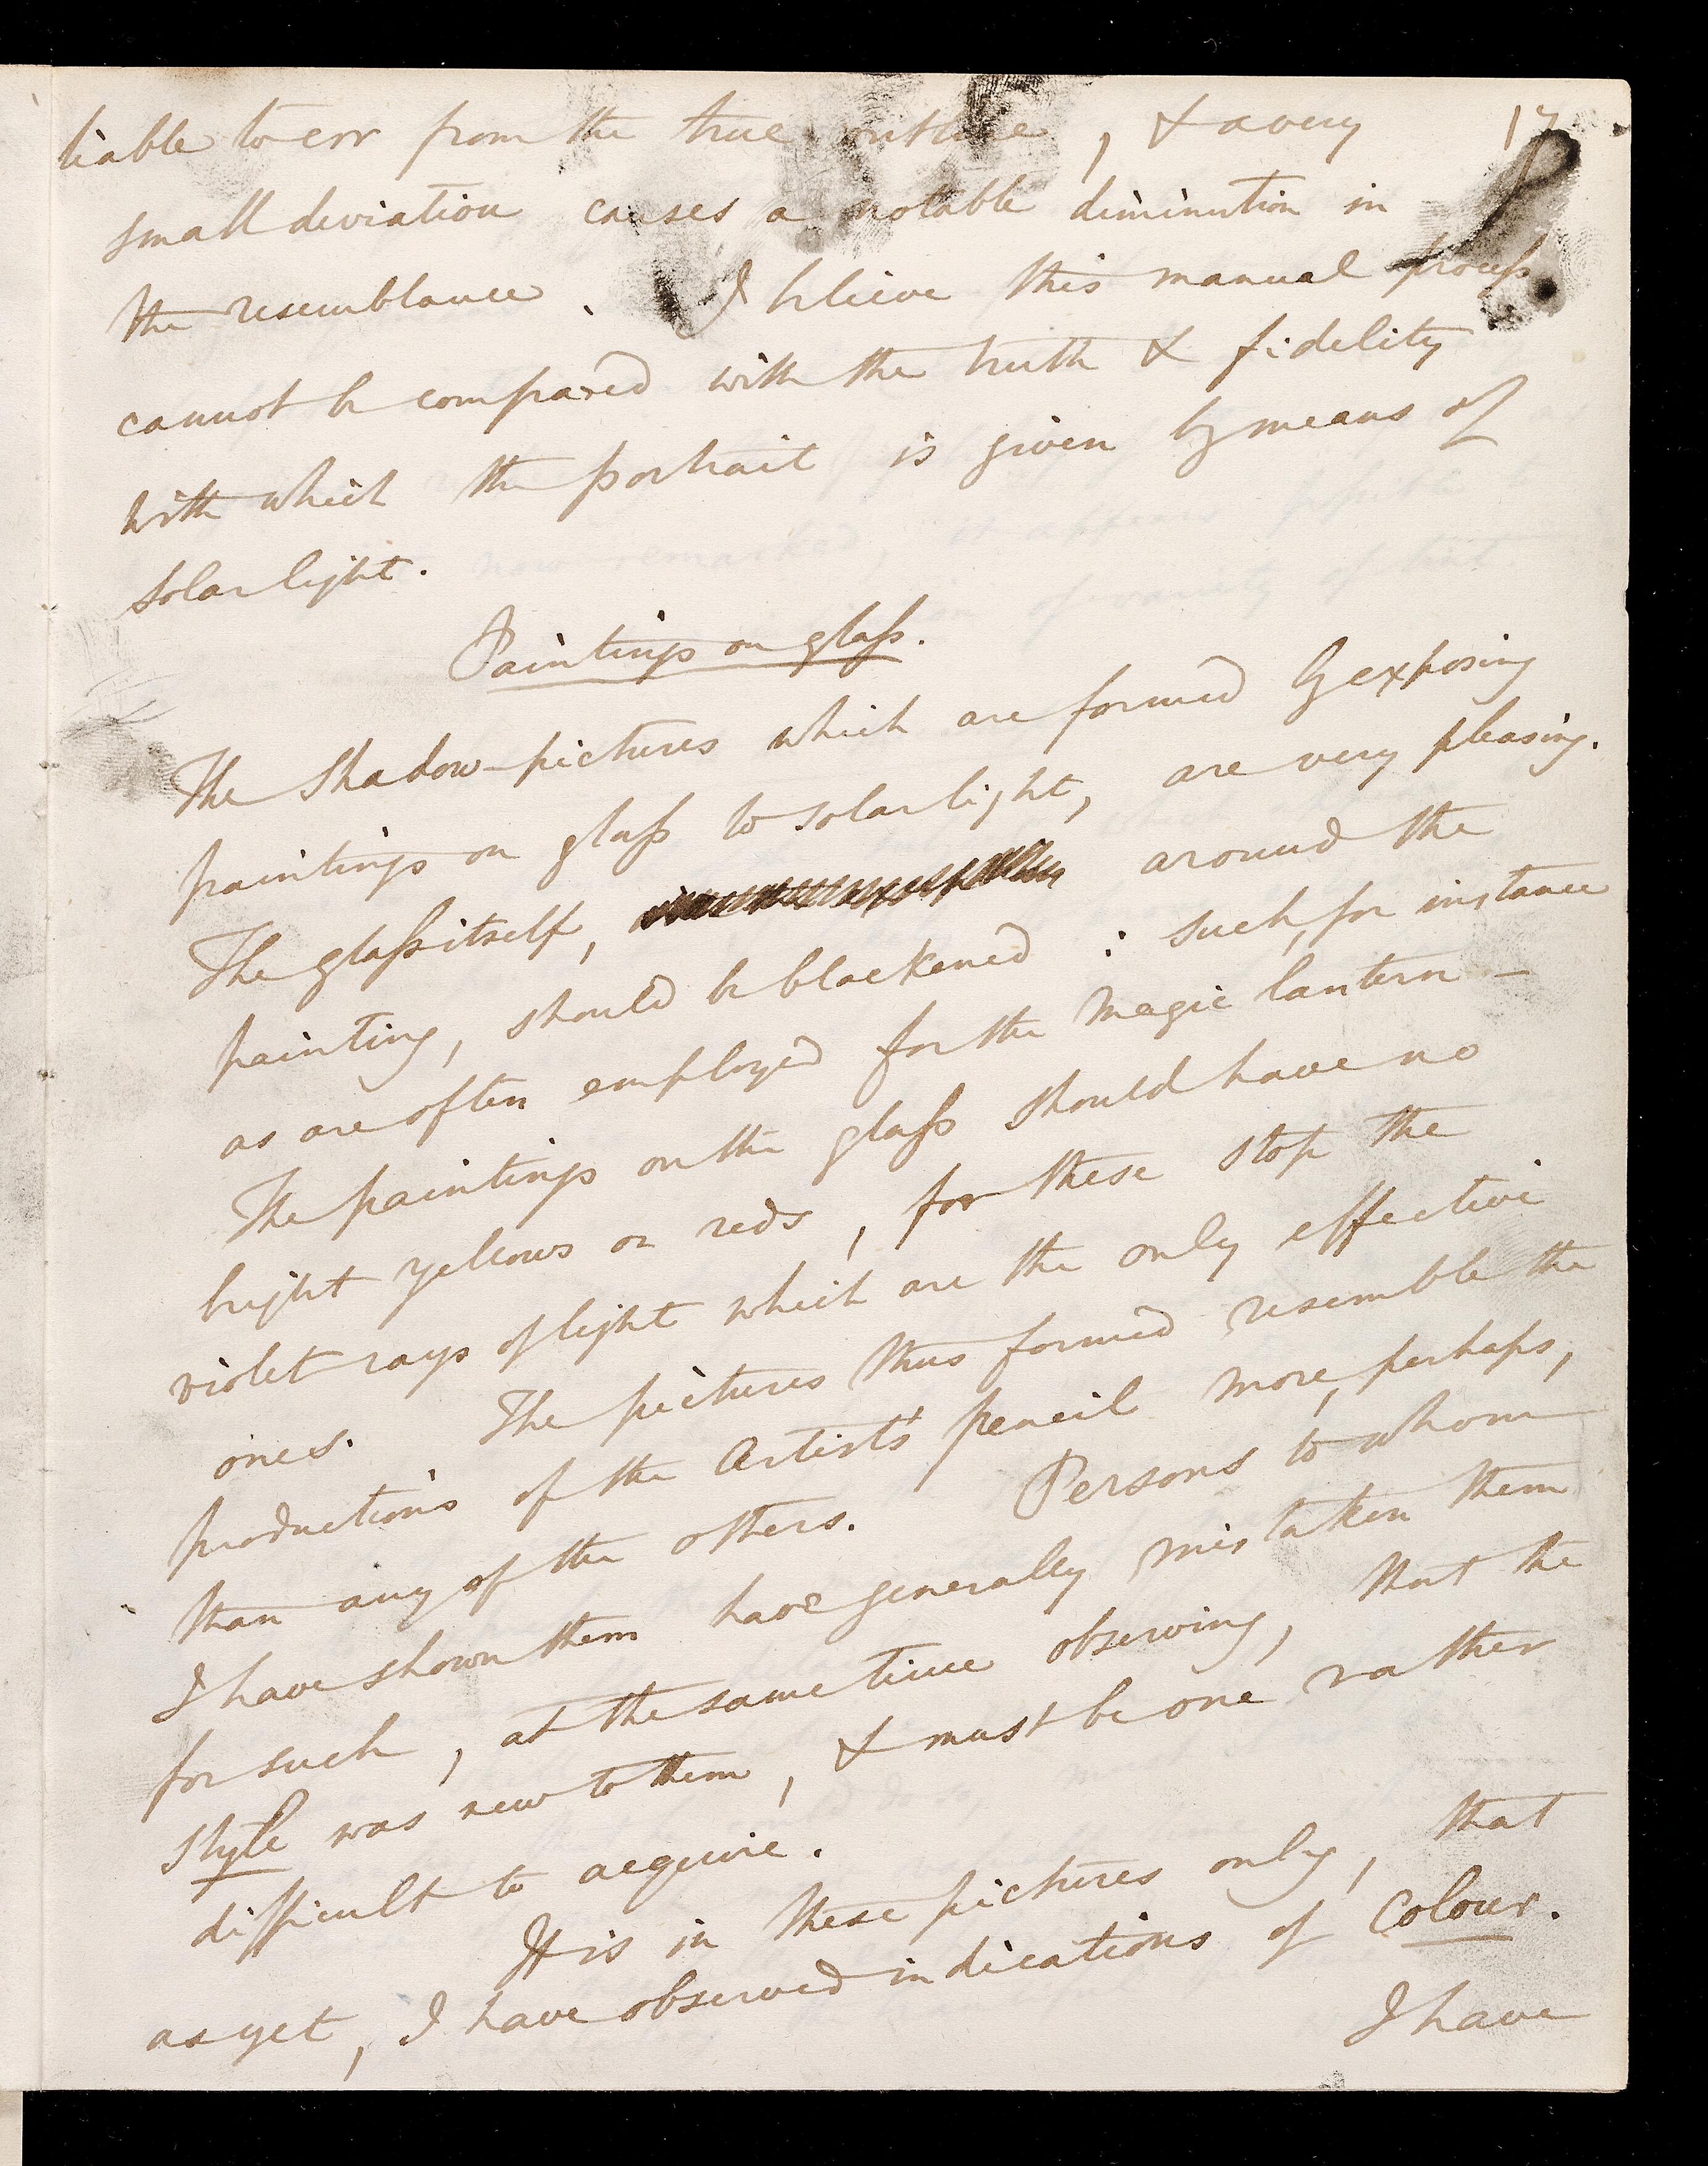 liable to err from the true outline, & a very 17
small deviation causes a notable diminution in
the resemblance. I believe this manual process
cannot be compared with the truth & fidelity
with which the portrait is given by means of
solar light.
Paintings on glass.
The Shadow-pictures which are formed by exposing
paintings on glass to solar light, are very pleasing.
The glass itself, around the
painting, should be blackened: such, for instance
as are often employed for the magic lantern –
The paintings on the glass should have no
bright yellows or reds, for these stop the
violet rays of light which are the only effective
ones. The pictures thus formed resemble the
productions of the Artist's pencil more, perhaps,
than any of the others. Persons to whom
I have shown them have generally mistaken them
for such, at the same time observing, that the
style was new to them, & must be one rather
difficult to acquire.
It is in these pictures only, that
as yet, I have observed indications of Colour.
I have